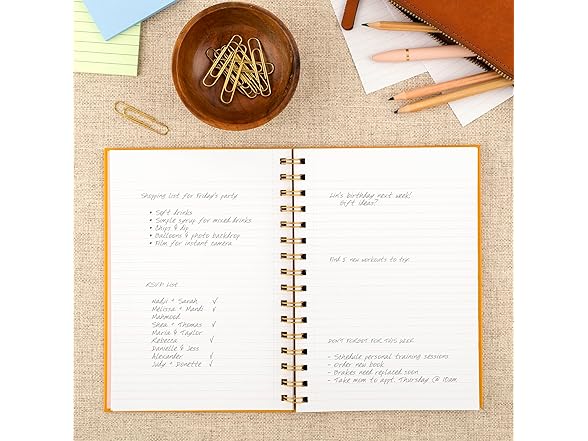 Shopping list for Friday's party
• Soft drinks
• Simple syrup for mixed drinks
• Chips & dip
• Balloons & photo backdrop
• Film for instant camera
RSVP List
Nadji + Sarah ✓
Melissa + Mandi ✓
Mahmood
Shea + Thomas ✓
Maria & Taylor
Rebecca ✓
Danielle & Jess
Alexander ✓
Judy + Donette ✓
Lin's birthday next week!
Gift ideas?
Find 5 new workouts to try:
DON'T FORGET FOR THIS WEEK
- Schedule personal training sessions
- Order new book
- Brakes need replaced soon
- Take mom to appt. Thursday @ 10am